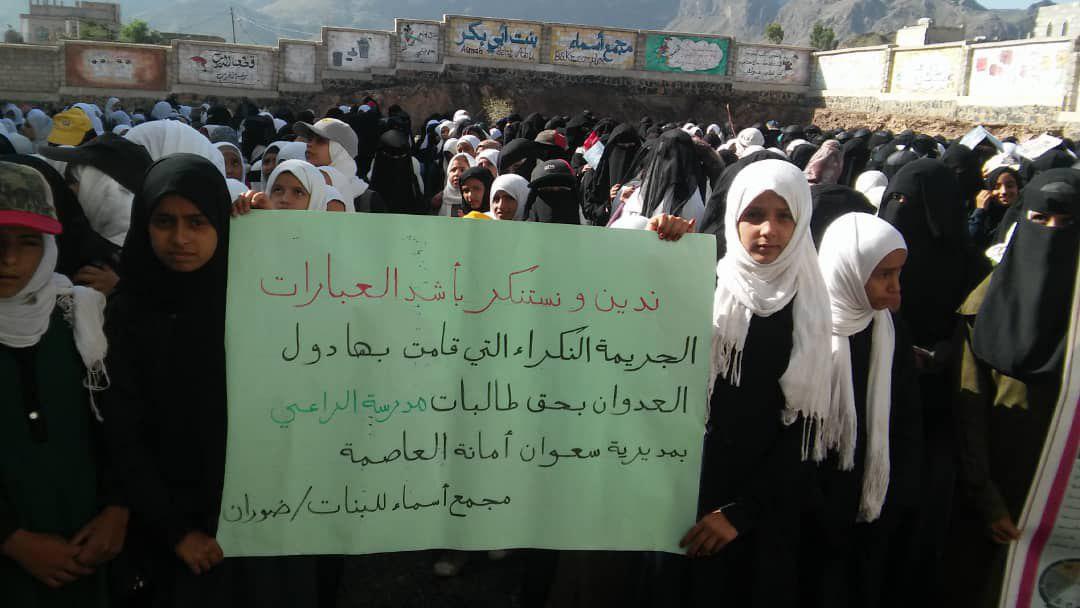 مجمع أسماء
بنت أبي بكر
ندين ونستنكر بأشد العبارات
الجريمة النكراء التي قامت بها دول
العدوان بحق طالبات مدرسة الراعي
بمديرية سعوان أمانة العاصمة
مجمع أسماء للبنات/ضوران